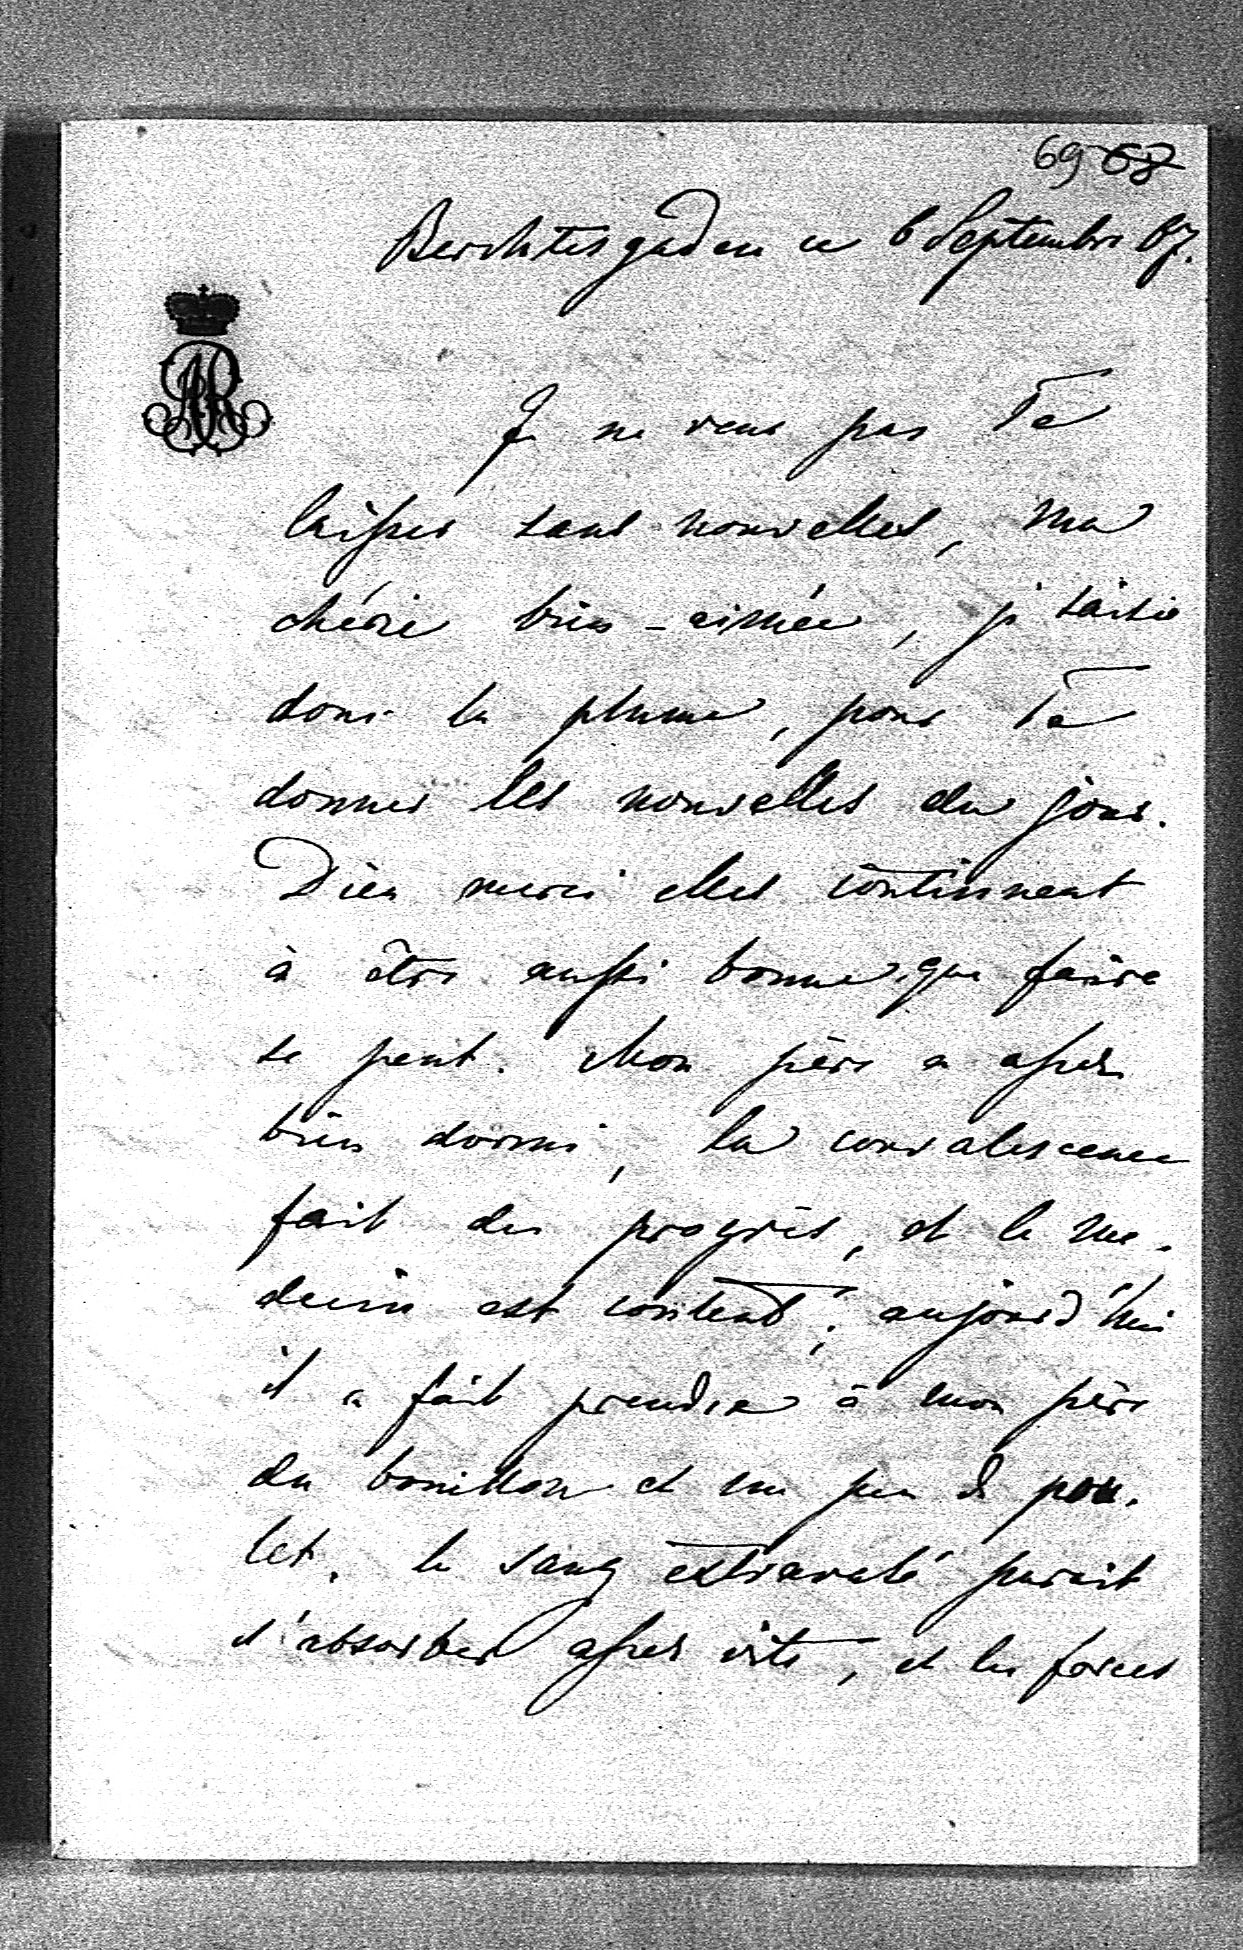 69 68
Berchtesgaden ce 6 Septembre 67.
AR
Je ne veux pas Te
laisser sans nouvelles, ma
chérie bien-aimée, je saisie
donc la plume, pour Te
donner les nouvelles du jour.
Dieu merci elles continuent
à être aussi bonnes que faire
se peut. Mon père a assez
bien dormi, la convalescence
fait des progrès, et le me-
decin est content; aujourd'hui
il a fait prendre à mon père
du bouillon et un peu de pou-
let. le sang extravasé parait
s'absorber assez vite, et les forces